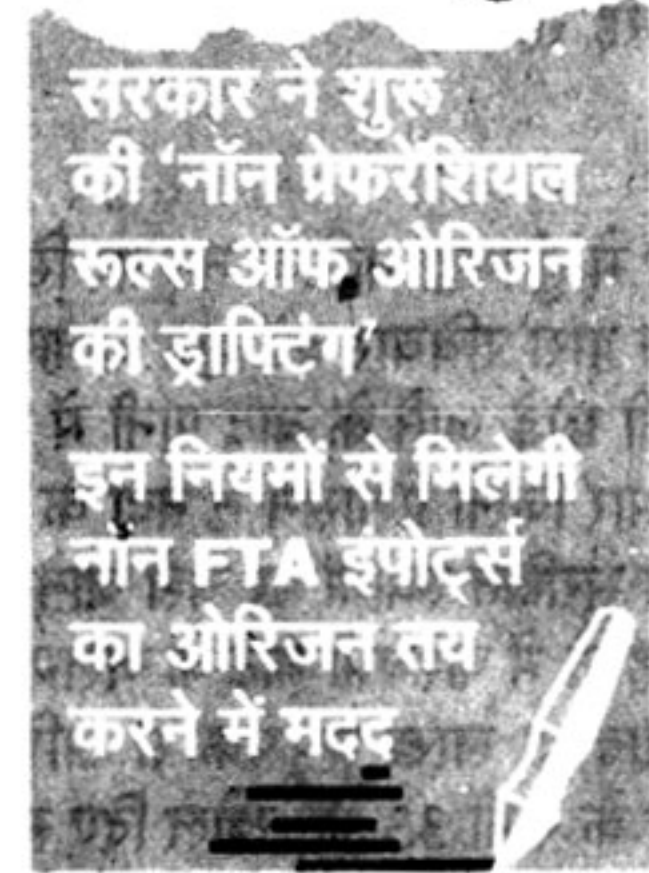 सरकार ने शुरू
की ‘नॉन प्रेफरेंशियल
रूल्स ऑफ ओरिजन
की ड्राफ्टिंग’
इन नियमों से मिलेगी
नॉन FTA इंपोर्ट्स
का ओरिजन तय
करने में मदद